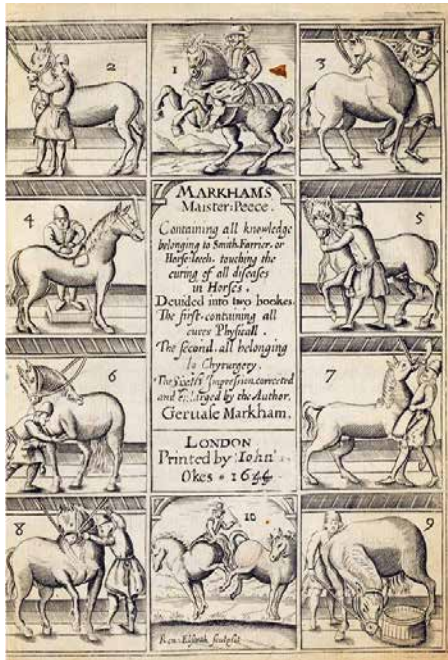 2
1
3
MARKHAMS
Maister-Peece.
4
Containing all knowledge
belonging to Smith, Farrier, or
Horse-leech, touching the
curing of all diseases
in Horses.
Deuided into two bookes.
The first, containing all
cures Physicall.
The second, all belonging
to Chyrurgery.
The Impression, corrected
and by the Author.
Geruase Markham.
5
6
7
LONDON
Printed by Iohn
Okes. 16
8
10
9
Ren: Elstrak sculpsit